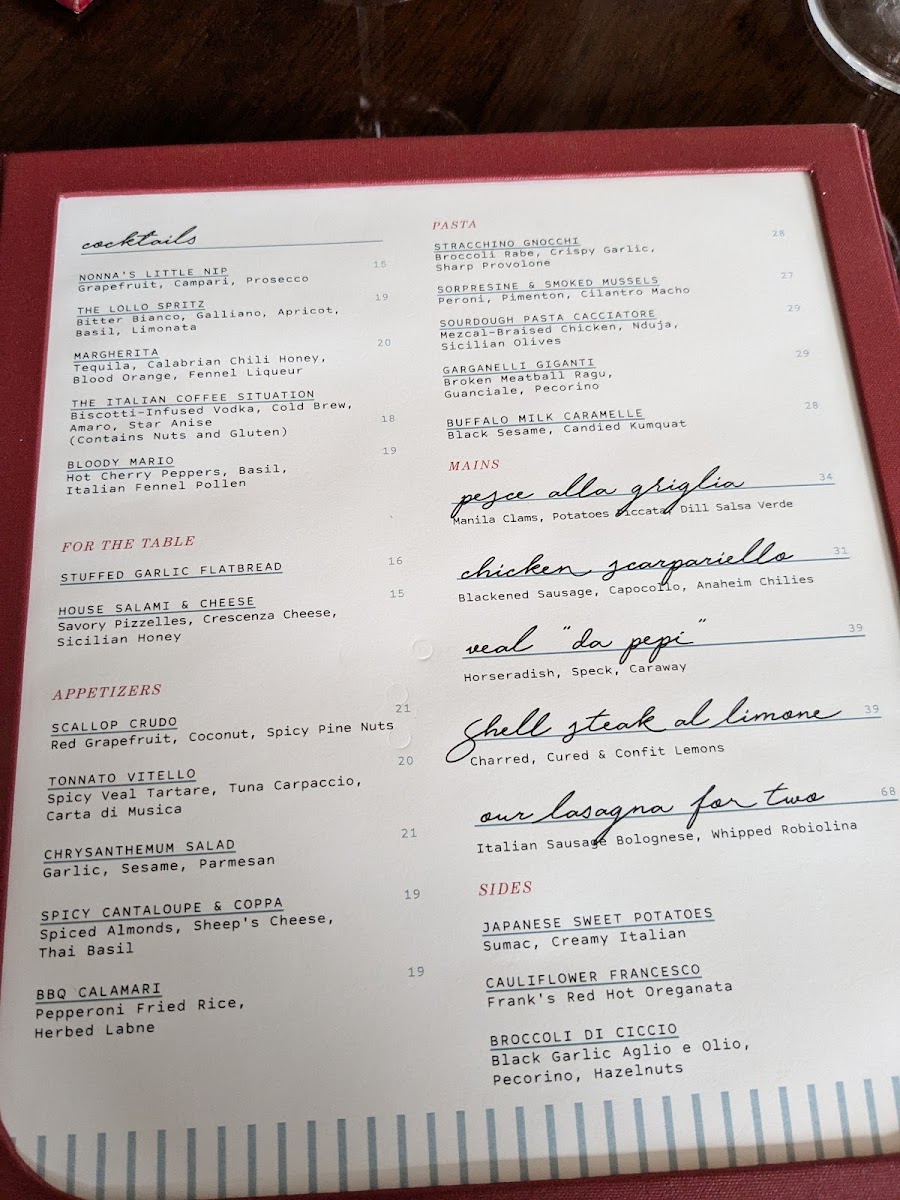 cocktails
NONNA'S LITTLE NIP 15
Grapefruit, Campari, Prosecco
THE LOLLO SPRITZ 19
Bitter Bianco, Galliano, Apricot,
Basil, Limonata
MARGHERITA 20
Tequila, Calabrian Chili Honey,
Blood Orange, Fennel Liqueur
THE ITALIAN COFFEE SITUATION
Biscotti-Infused Vodka, Cold Brew,
Amaro, Star Anise 18
(Contains Nuts and Gluten)
BLOODY MARIO 19
Hot Cherry Peppers, Basil,
Italian Fennel Pollen
FOR THE TABLE
STUFFED GARLIC FLATBREAD 16
HOUSE SALAMI & CHEESE 15
Savory Pizzelles, Crescenza Cheese,
Sicilian Honey
APPETIZERS
SCALLOP CRUDO 21
Red Grapefruit, Coconut, Spicy Pine Nuts
TONNATO VITELLO 20
Spicy Veal Tartare, Tuna Carpaccio,
Carta di Musica
CHRYSANTHEMUM SALAD 21
Garlic, Sesame, Parmesan
SPICY CANTALOUPE & COPPA 19
Spiced Almonds, Sheep's Cheese,
Thai Basil
BBQ CALAMARI 19
Pepperoni Fried Rice,
Herbed Labne
PASTA
STRACCHINO GNOCCHI 28
Broccoli Rabe, Crispy Garlic,
Sharp Provolone
SORPRESINE & SMOKED MUSSELS 27
Peroni, Pimenton, Cilantro Macho
SOURDOUGH PASTA CACCIATORE 29
Mezcal-Braised Chicken, Nduja,
Sicilian Olives
GARGANELLI GIGANTI 29
Broken Meatball Ragu,
Guanciale, Pecorino
BUFFALO MILK CARAMELLE 28
Black Sesame, Candied Kumquat
MAINS
pesce alla griglia 34
Manila Clams, Potatoes Piccata, Dill Salsa Verde
chicken scarpariello 31
Blackened Sausage, Capocollo, Anaheim Chilies
veal "da pepi" 39
Horseradish, Speck, Caraway
Shell steak al limone 39
Charred, Cured & Confit Lemons
our lasagna for two 68
Italian Sausage Bolognese, Whipped Robiolina
SIDES
JAPANESE SWEET POTATOES
Sumac, Creamy Italian
CAULIFLOWER FRANCESCO
Frank's Red Hot Oreganata
BROCCOLI DI CICCIO
Black Garlic Aglio e Olio,
Pecorino, Hazelnuts